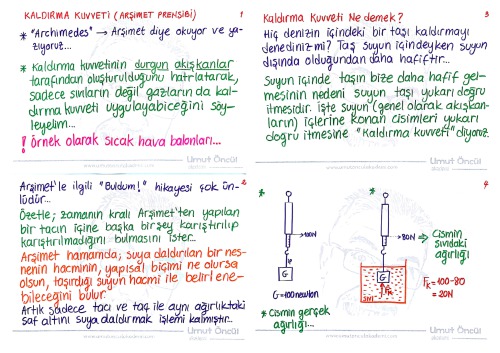 KALDIRMA KUVVETİ (ARŞİMET PRENSİBİ)
1
* "Archimedes" → Arşimet diye okuyor ve ya-
zıyoruz...
* Kaldırma kuvvetinin durgun akışkanlar
tarafından oluşturulduğunu hatırlatarak,
sadece sıvıların değil gazların da kal-
dırma kuvveti uygulayabileceğini söy-
leyelim...
! Örnek olarak sıcak hava balonları...
www.umutoncuakademi.com
Umut Öncül
akademi
3
Kaldırma Kuvveti Ne demek?
Hiç denizin içindeki bir taşı kaldırmayı
denediniz mi? Taş suyun içindeyken suyun
dışında olduğundan daha hafiftir...
Suyun içinde taşın bize daha hafif gel-
mesinin nedeni suyun taşı yukarı doğru
itmesidir. İşte suyun (genel olarak akışkan-
ların) içlerine konan cisimleri yukarı
doğru itmesine "Kaldırma kuvveti" diyoruz.
Umut Öncül
akademi
2
Arşimet'le ilgili "Buldum!" hikayesi çok ün-
lüdür...
Özetle; zamanın kralı Arşimet'ten yapılan
bir tacın içine başka bir şey karıştırılıp
karıştırılmadığını bulmasını ister...
Arşimet hamamda; suya daldırılan bir nes-
nenin hacminin, yapısal biçimi ne olursa
olsun, taşırdığı suyun hacmi ile belirlene-
bileceğini bulur.
Artık sadece tacı ve taç ile aynı ağırlıktaki
saf altını suya daldırmak işlemi kalmıştır...
Umut Öncül
akademi
4
*
100N
G
G=100newton
* Cismin gerçek
ağırlığı...
*
80N ⇒ Cismin
sıvıdaki
ağırlığı
G
FK
SIVI
FK=100-80
=20N
Umut Öncül
akademi